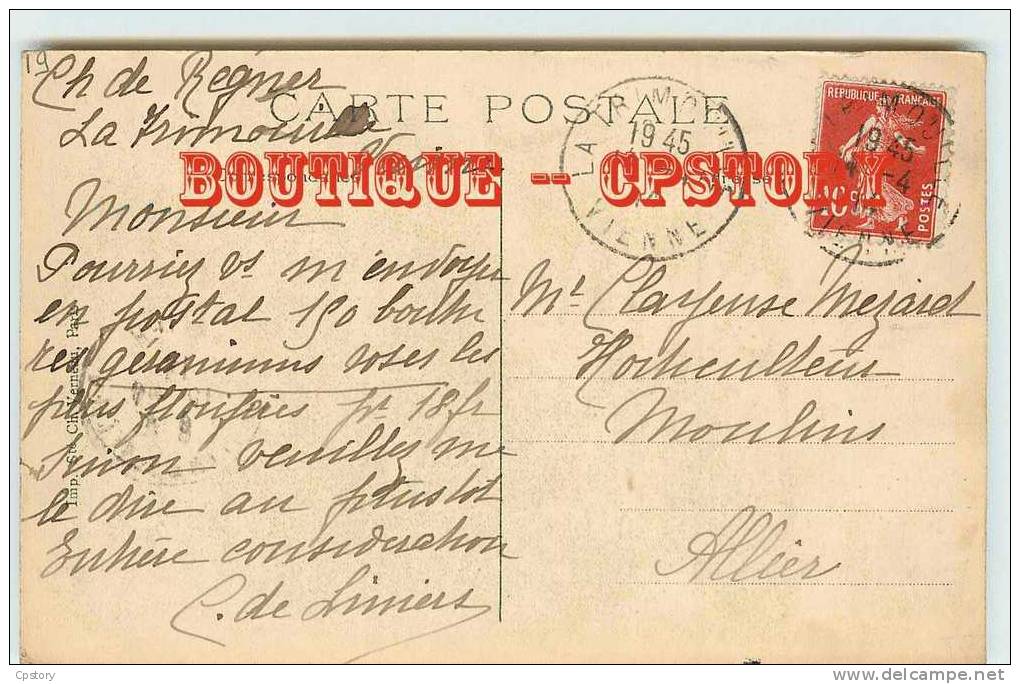 19
Ch de Regner
La Trimouille
Vienne
CARTE POSTALE
BOUTIQUE -- CPSTORY
LA TRIMOUILLE
19 45
VIENNE
REPUBLIQUE FRANÇAISE
10c
POSTES
19 45
-4
VIENNE
Monsieur
Pourriez vs m'envoyer
en postal 150 boutu
res géraniums roses les
plus florifères pr 18 fr
Sinon veuillez me
le dire au plustot
Entière consideration
C. de Liniers
Mr Clayeuse Mezard
Horticulteur
Moulins
Allier
Imp. Sté Ch. Verneau, Paris
Cpstory
delcampe.net